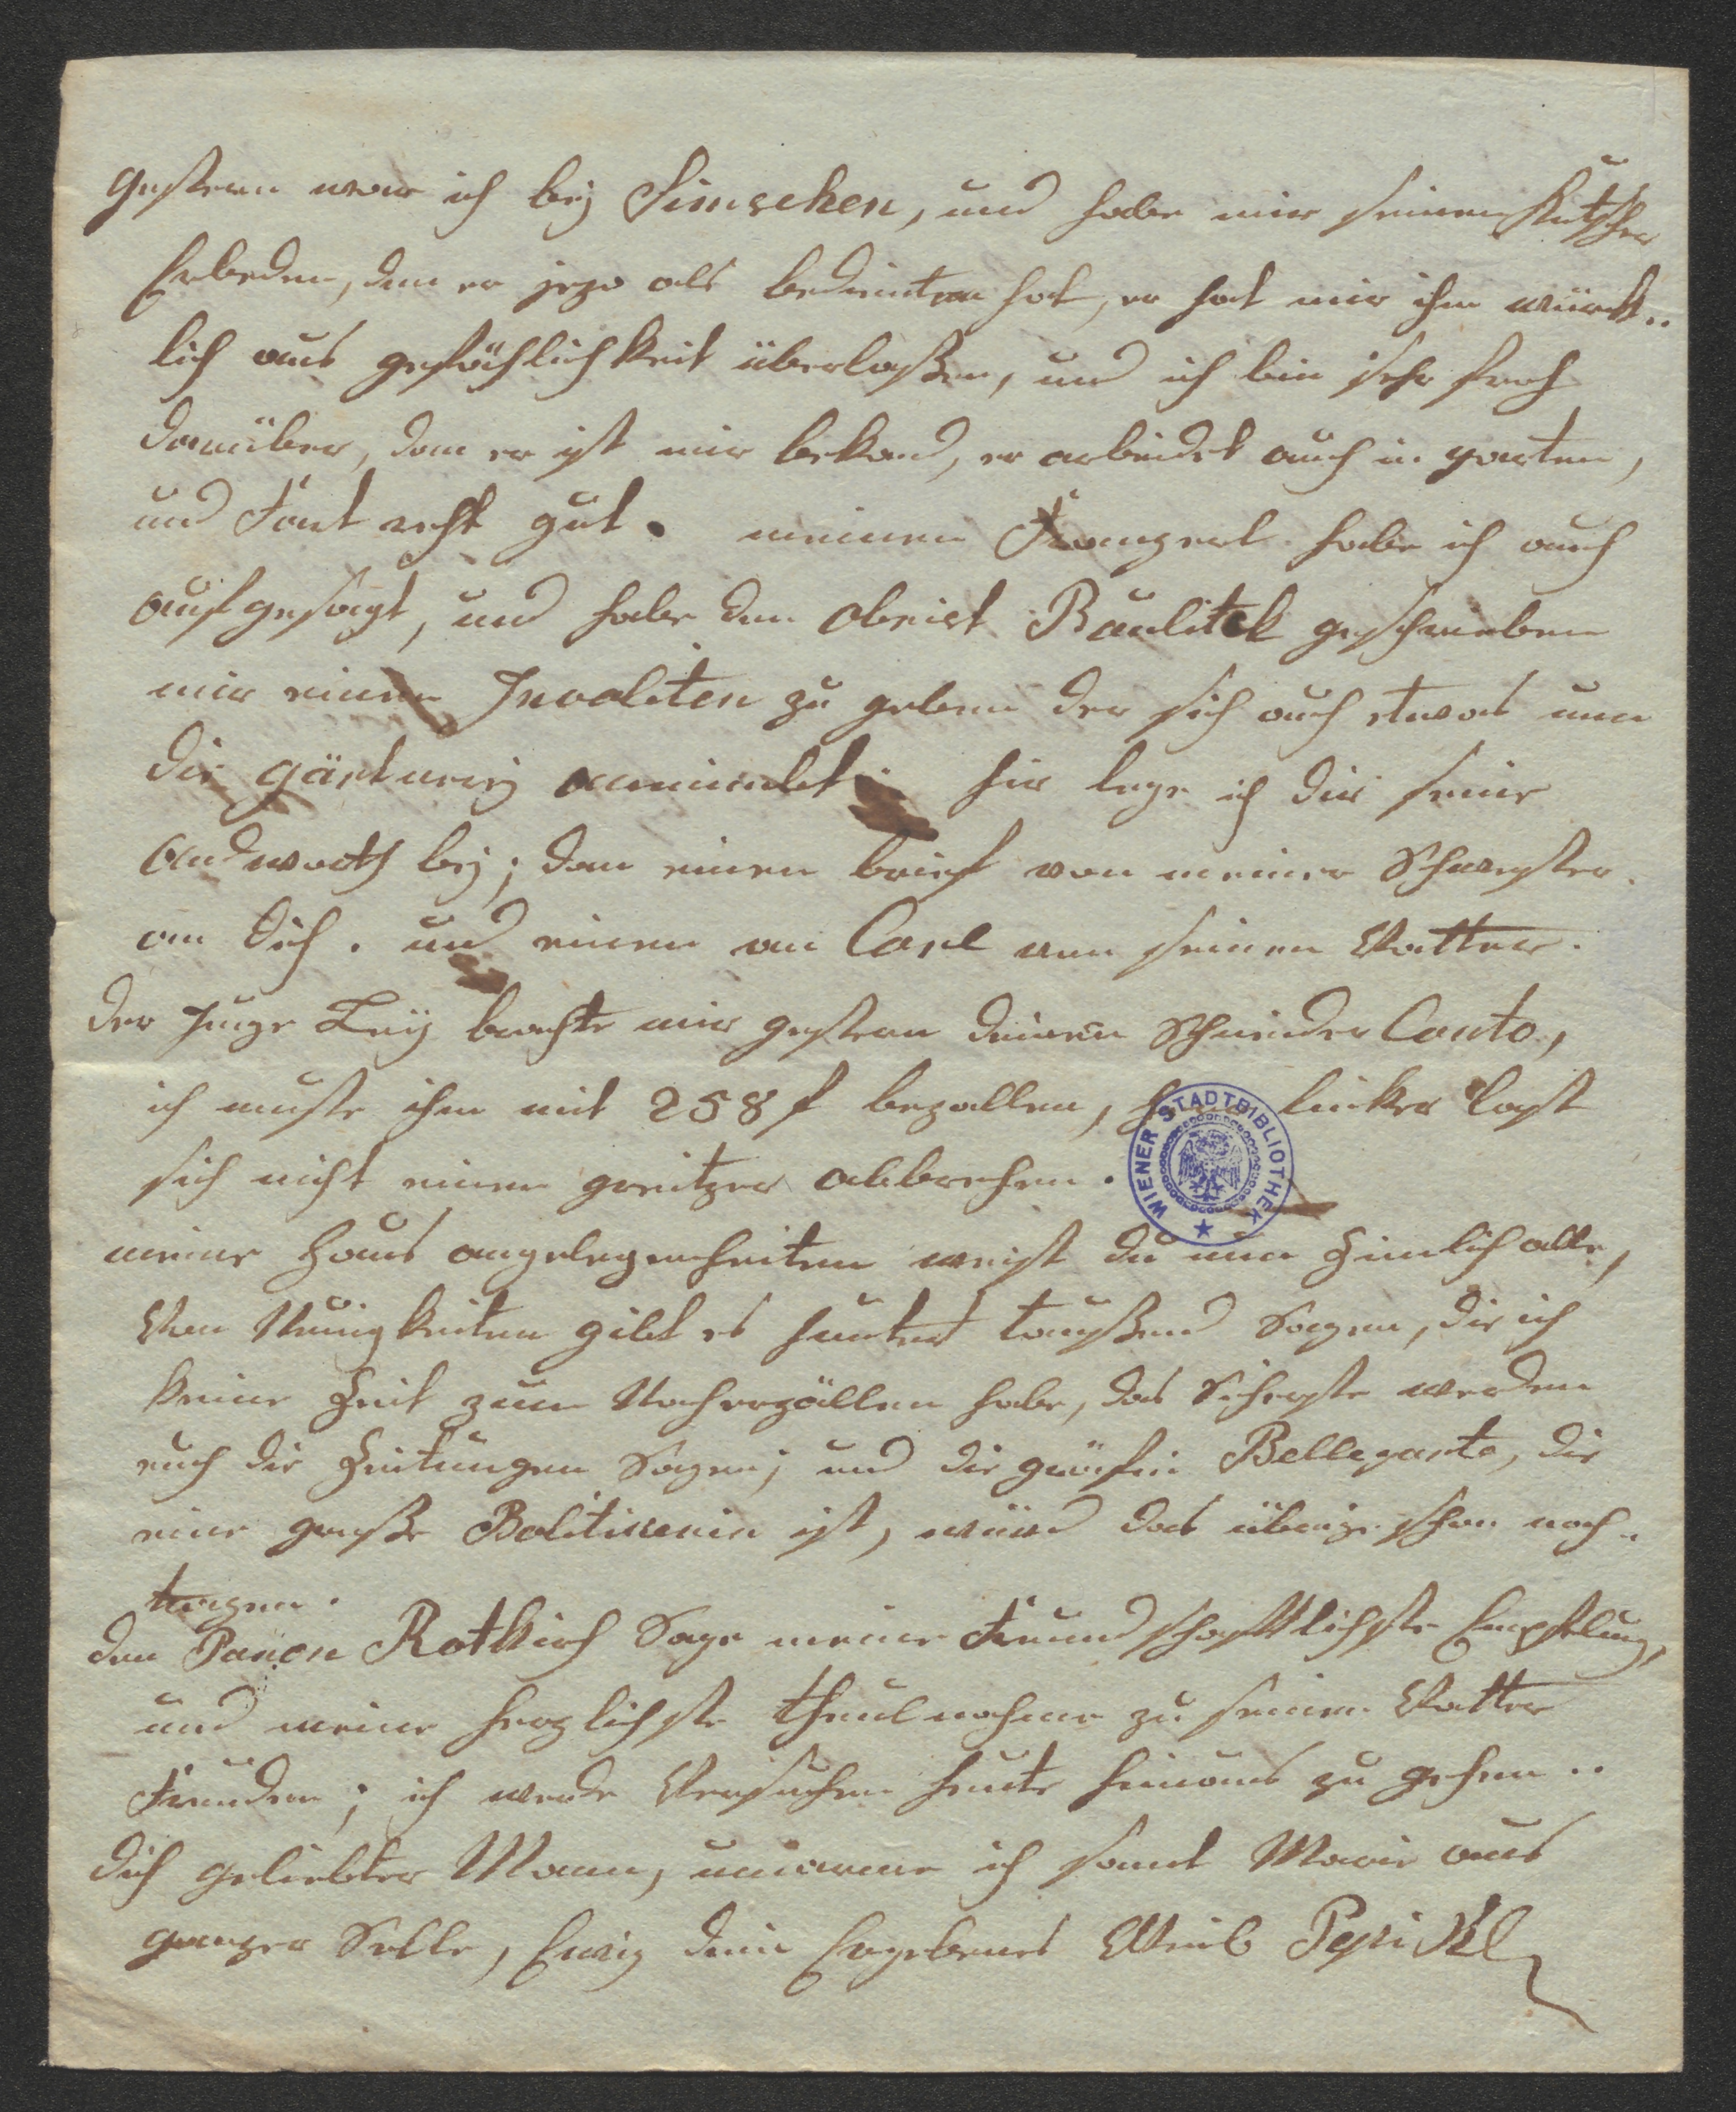 gestern war ich beÿ Simschen, und habe mir seinen Kutscher
Erbeden, den er jezo als bedienten hat, er hat mir ihn würck..
lich aus gefählichkeit überlaßen, und ich bin sehr froh
darüber, dan er ist mir bekand, er arbeidet auch in garten,
und Fart recht gut. meinen Franzerl habe ich auch
aufgesagt, und habe den obrist Baulitek geschrieben
mir einen Invaliten zu geben der sich auch etwas um
die gärtnereÿ annimdet hir lege ich dir seine
andworth beÿ; dan einen brief von meiner Schwester
an dich. und einen an Carl von seinen Vatter.
der Junge Leÿ brachte mir gestern deinen Schneider Conto,
ich muste ihm mit 258 f bezallen, linker last
sich nicht einen greitzer abbrechen.
WIENER STADTBIBLIOTHEK
meine Haus angelegenheiten weist du nun Zimlich alle,
Von Neuigkeiten gibt es huntert taußend Sagen, die ich
keine Zeit zum Nacherzällen habe, das Sicherste werden
euch die Zeitungen Sagen; und die gräfin Bellegarte, die
eine große Bolitickerin ist, würd das übrige schon nach..
tragen.
den Paron Rotkirch Sage meine Freundschafftlichste Empfelung,
und meine herzlichste theulnahme zu seinen Vatter
Freuden; ich werde Versuchen heute hinaus zu gehen..
dich geliebter Mann, umarme ich samt Marie aus
ganzer Selle, Ewig dein Ergebenes Weib Pepi